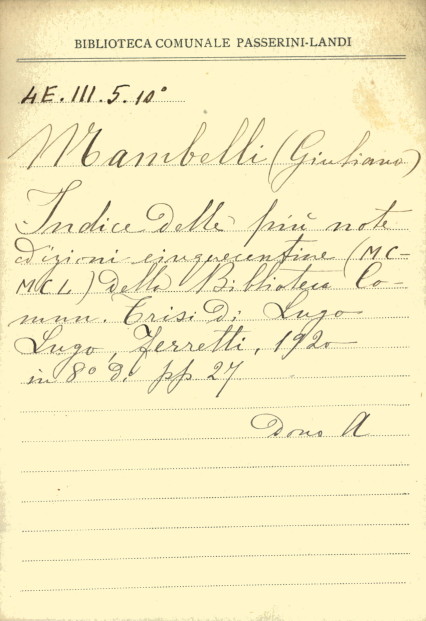 BIBLIOTECA COMUNALE PASSERINI-LANDI
4E.III.5.10°
Mambelli (Giuliano)
Indice delle più note
edizioni cinquecentine (MC-
MCL) della Biblioteca Co-
mun. Trisi di Lugo
Lugo, Ferretti, 1920
in 8° di pp 27
Dono A